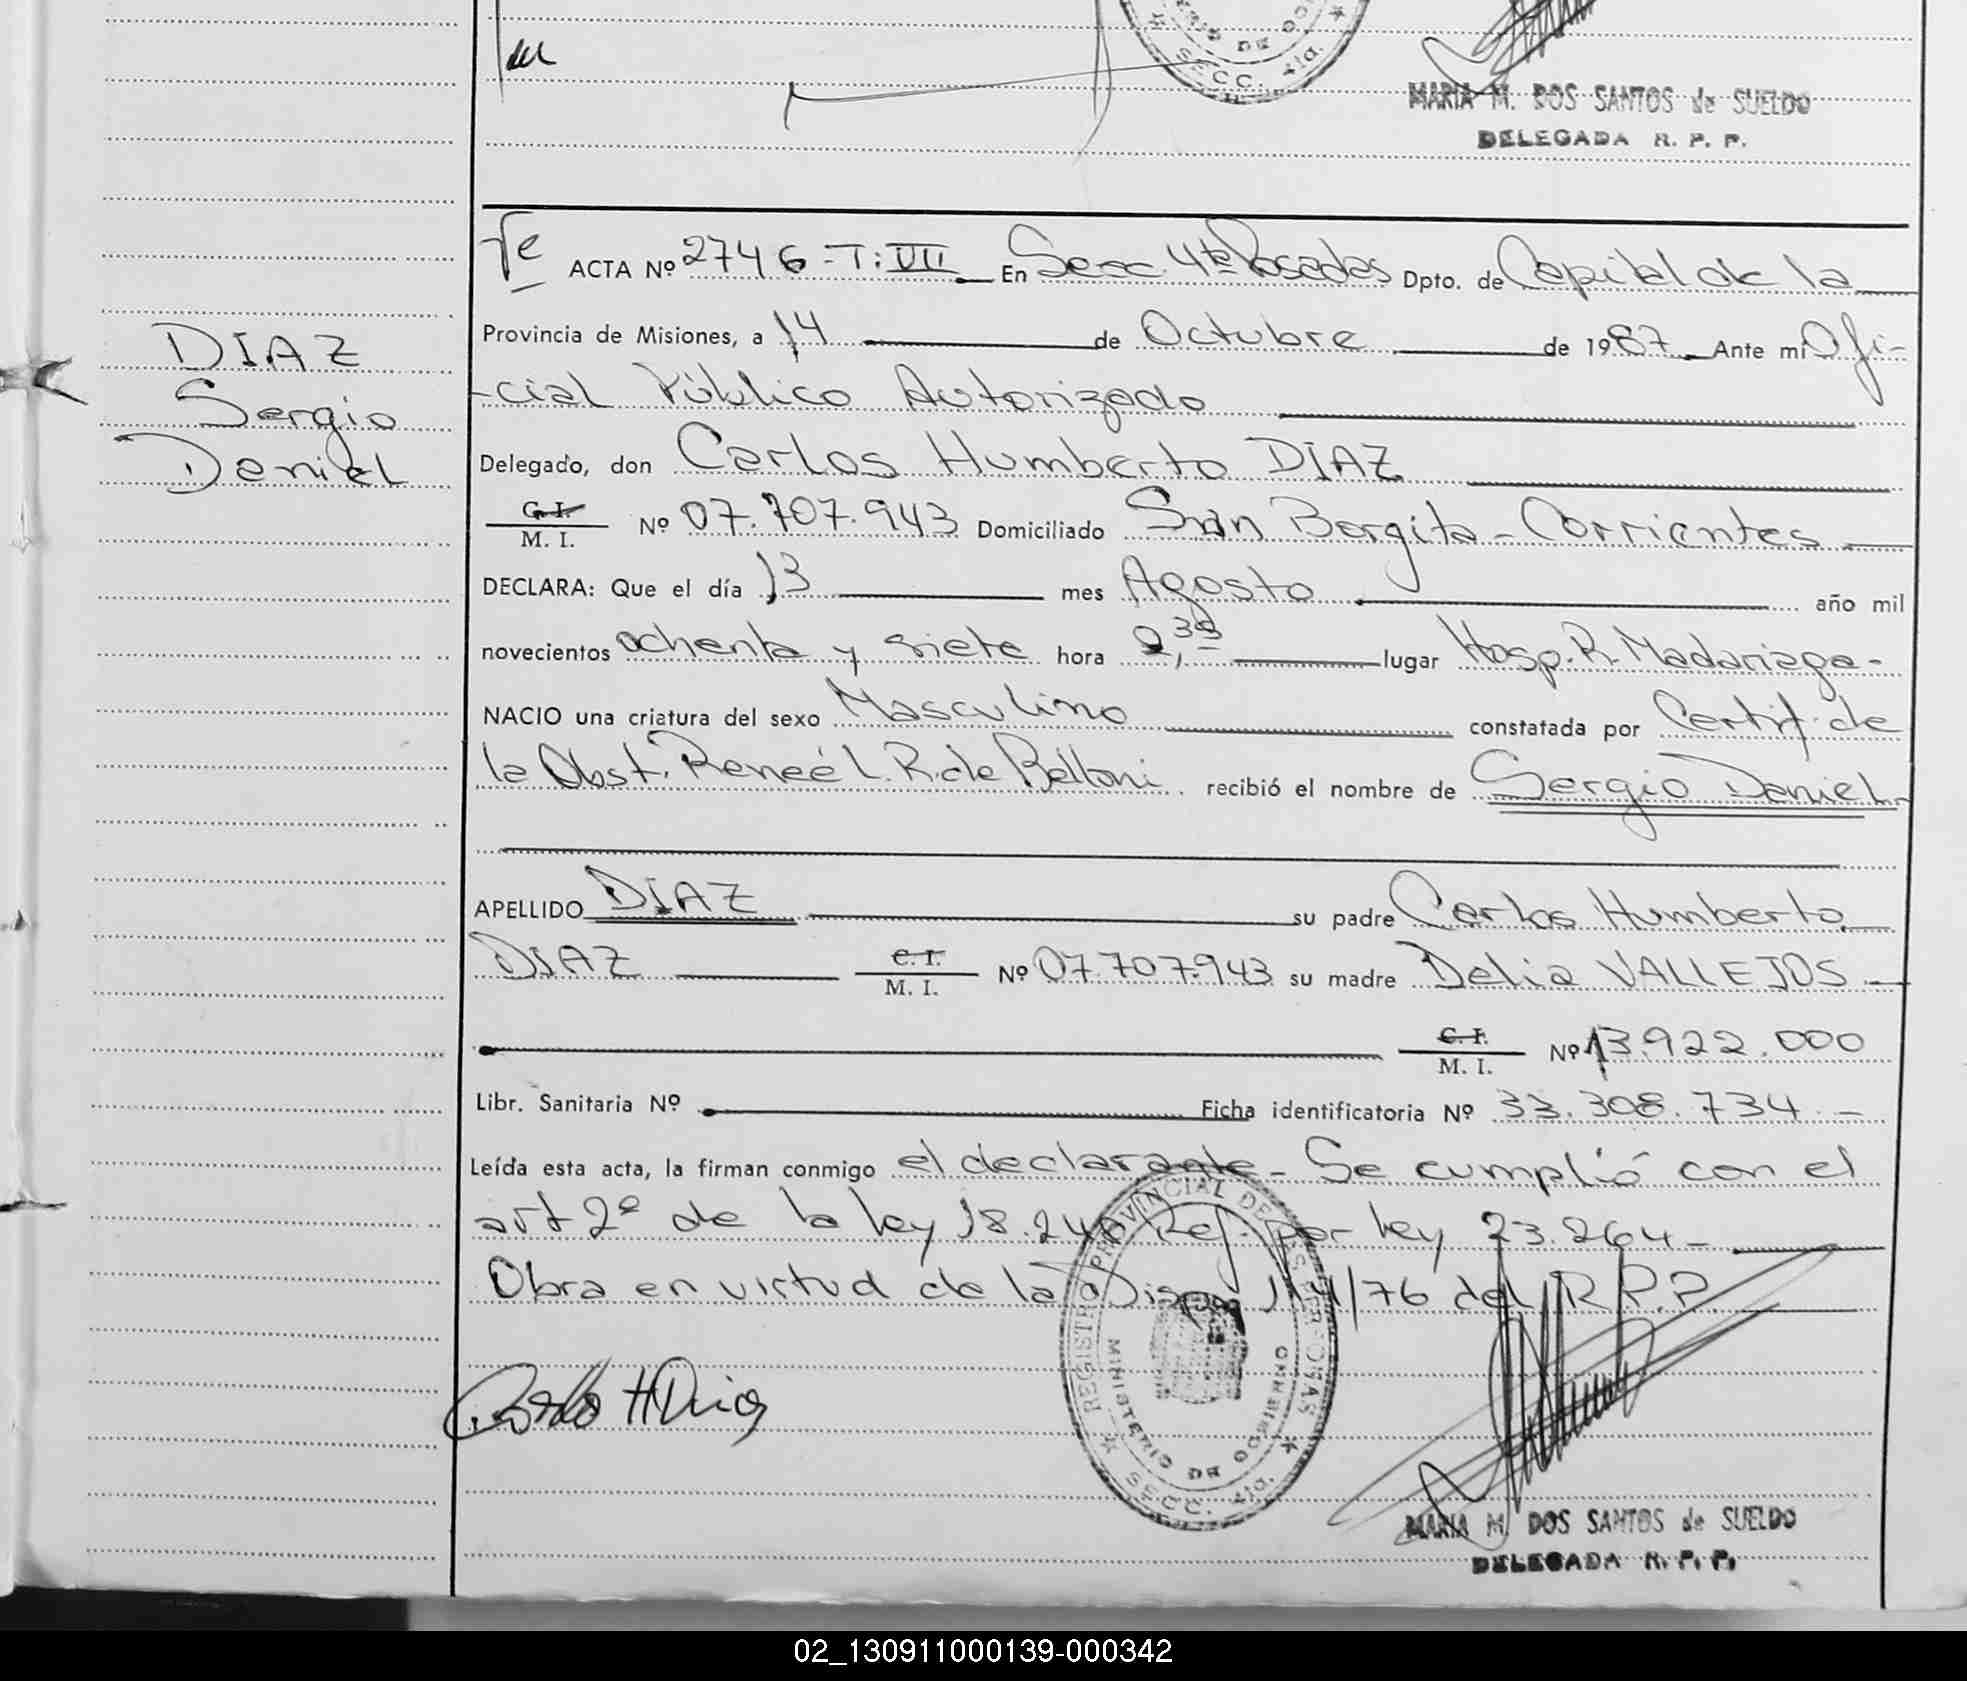 MARIA M. DOS SANTOS de SUELDO
DELEGADA R. P. P.
SECC. 4ta.
ACTA Nº 2746 - T: VII En Secc. 4ta Posadas Dpto. de Capital de la
Provincia de Misiones, a 14 de Octubre de 1987 Ante mi Ofi-
-cial Público Autorizado
DIAZ
Sergio
Daniel
Delegado, don Carlos Humberto DIAZ
C. I.
M. I. Nº 07.707.943 Domiciliado San Borgita - Corrientes
DECLARA: Que el día 13 mes Agosto año mil
novecientos ochenta y siete hora lugar Hosp. R. Madariaga -
NACIO una criatura del sexo Masculino constatada por Certif. de
la Obst. Reneé L. R. de Beltoni recibió el nombre de Sergio Daniel
APELLIDO DIAZ su padre Carlos Humberto
DIAZ C. I.
M. I. Nº 07.707.943 su madre Delia VALLEJOS
C. I.
M. I. Nº 13.922.000
Libr. Sanitaria Nº Ficha identificatoria Nº 33.308.734. -
Leída esta acta, la firman conmigo el declarante - Se cumplió con el
art 2º de la ley 18.248 Ref. por ley 23.264 -
Obra en virtud de la Dispos 114/76 del R.P.P.
REGISTRO PROVINCIAL DE LAS PERSONAS
MINISTERIO DE GOBIERNO
SECC. 4ta.
Carlos H Diaz
MARIA M. DOS SANTOS de SUELDO
DELEGADA R. P. P.
02_130911000139-000342